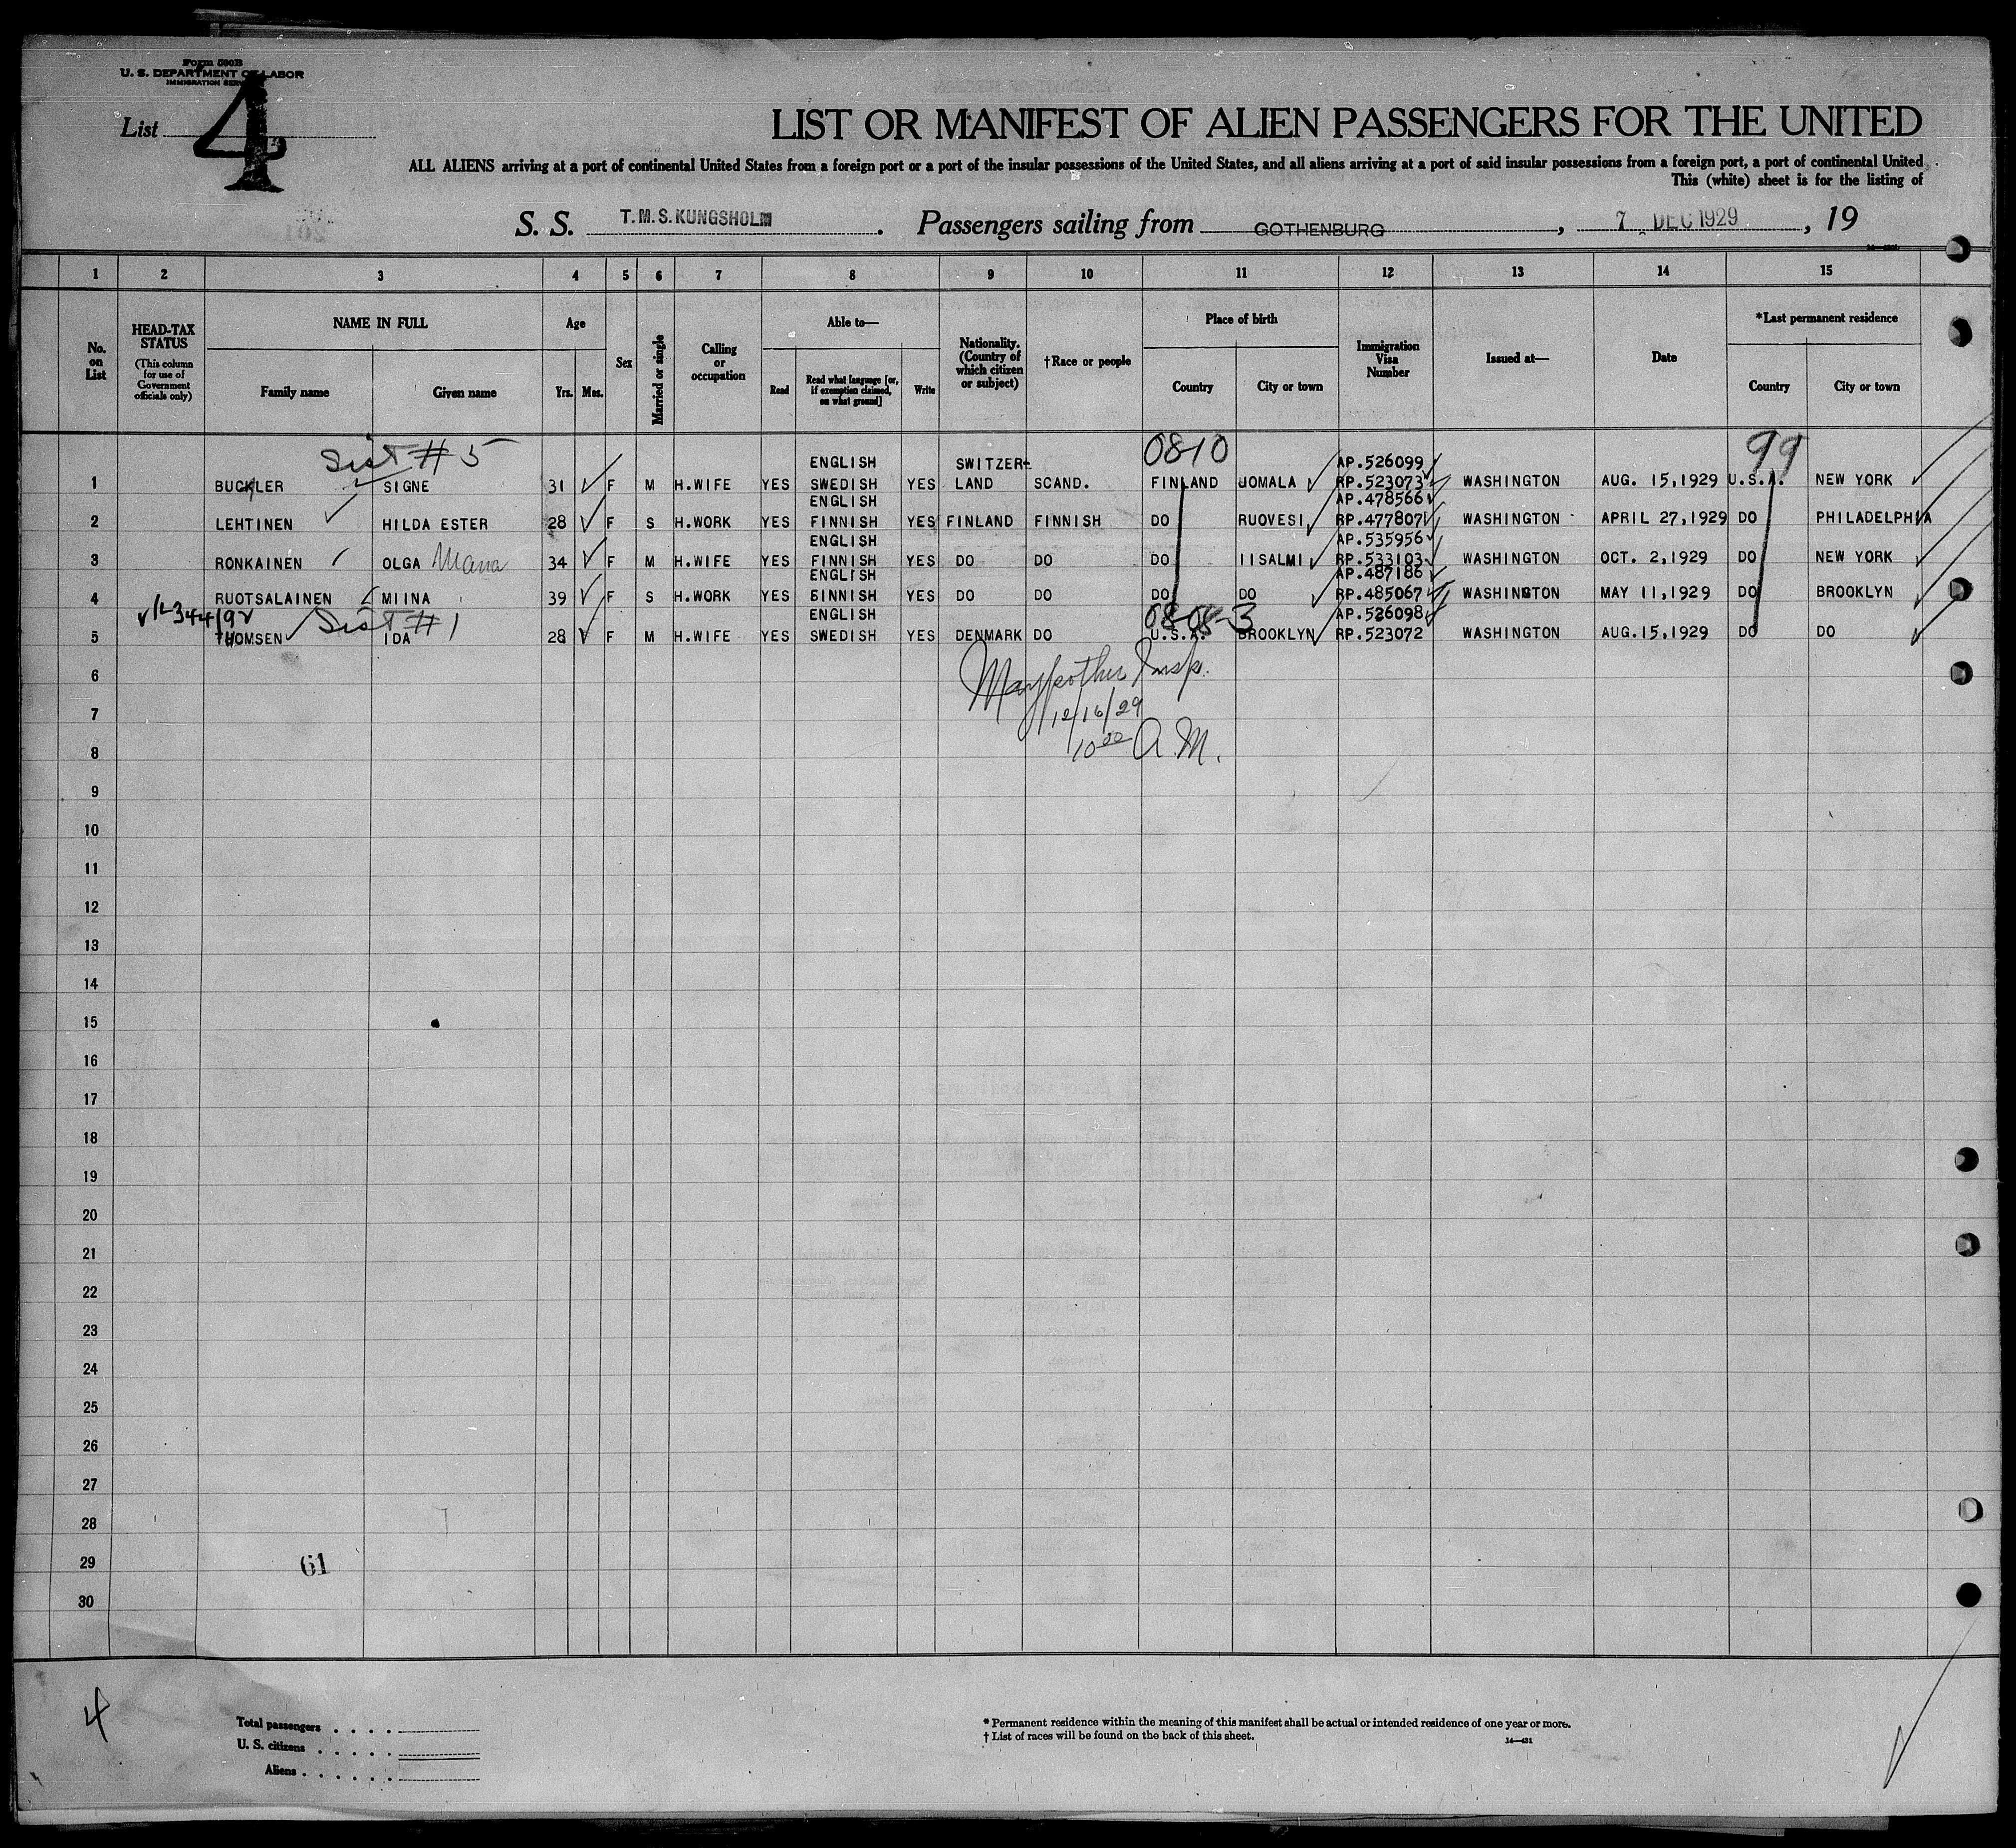 Form 500B
U. S. DEPARTMENT OF LABOR
IMMIGRATION SERVICE
List 4
LIST OR MANIFEST OF ALIEN PASSENGERS FOR THE UNITED
ALL ALIENS arriving at a port of continental United States from a foreign port or a port of the insular possessions of the United States, and all aliens arriving at a port of said insular possessions from a foreign port, a port of continental United
This (white) sheet is for the listing of
S. S. T.M.S. KUNGSHOLM . Passengers sailing from GOTHENBURG , 7 DEC 1929 , 19
1 2 3 4 5 6 7 8 9 10 11 12 13 14 15
No. on List
HEAD-TAX STATUS
(This column for use of Government officials only)
NAME IN FULL
Family name Given name
Age
Yrs. Mos.
Sex
Married or single
Calling or occupation
Able to—
Read Read what language [or, if exemption claimed, on what ground] Write
Nationality. (Country of which citizen or subject)
†Race or people
Place of birth
Country City or town
Immigration Visa Number
Issued at—
Date
*Last permanent residence
Country City or town
Sist #5 0810 99
ENGLISH SWITZER- AP.526099
1 BUCKLER SIGNE 31 F M H.WIFE YES SWEDISH YES LAND SCAND. FINLAND JOMALA RP.523073 WASHINGTON AUG. 15,1929 U.S.A. NEW YORK
ENGLISH AP.478566
2 LEHTINEN HILDA ESTER 28 F S H.WORK YES FINNISH YES FINLAND FINNISH DO RUOVESI RP.477807 WASHINGTON APRIL 27,1929 DO PHILADELPHIA
ENGLISH AP.535956
3 RONKAINEN OLGA Maria 34 F M H.WIFE YES FINNISH YES DO DO DO IISALMI RP.533103 WASHINGTON OCT. 2,1929 DO NEW YORK
ENGLISH AP.487186
4 RUOTSALAINEN MIINA 39 F S H.WORK YES FINNISH YES DO DO DO DO RP.485067 WASHINGTON MAY 11,1929 DO BROOKLYN
Sist #1 ENGLISH 08-08-3 AP.526098
5 THOMSEN IDA 28 F M H.WIFE YES SWEDISH YES DENMARK DO U.S.A. BROOKLYN RP.523072 WASHINGTON AUG.15,1929 DO DO
6
Insp.
7
12/16/29
8
10 00 A.M.
9
10
11
12
13
14
15
16
17
18
19
20
21
22
23
24
25
26
27
28
29 61
30
4
Total passengers . . . .
U. S. citizens . . . . .
Aliens . . . . . .
* Permanent residence within the meaning of this manifest shall be actual or intended residence of one year or more.
† List of races will be found on the back of this sheet.
14—431